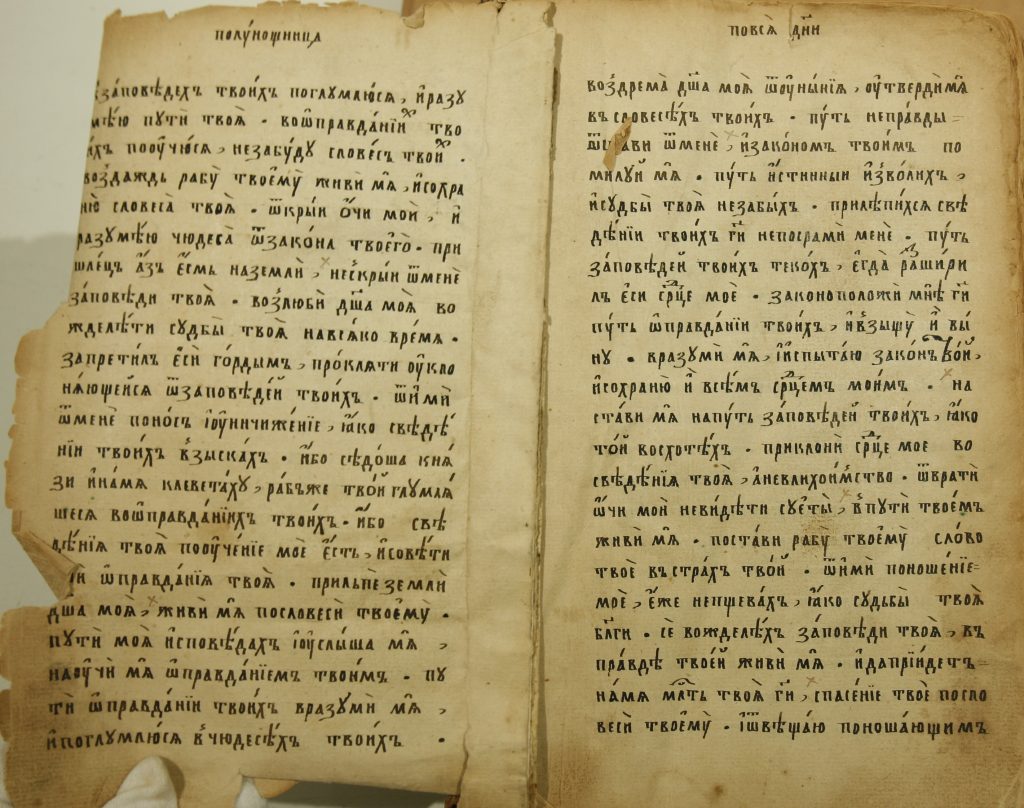 полꙋ́нощница
за́повѣдехъ твои́хъ поглумлю́сѧ, и҆разу
мѣ́ю пути твоѧ̀ . воѡ҆правда́нїи^х тво
и́хъ пооучю́сѧ, незабу́ду слове́съ твои^х .
возда́ждь рабꙋ̀ твоемꙋ̀ живи́ мѧ, и҆сохра
ню̀ словеса твоѧ̀ . ѿкры́и о҆́чи мои̑, и҆
разумѣ́ю чюдеса̀ ѿзако́на твоегѡ̀ . при
шле́цъ а҆́зъ е҆́смь наземлѝ, нескры́и ѿменѐ
за́повѣди твоѧ̀ . возлюбѝ дш҃а моѧ̀ во
жделѣ́ти судьбы̀ твоѧ̀ навсѧ́ко вре́мѧ .
запрети́лъ е҆сѝ го́рдымъ, про́клѧти оу҆кло
нѧ́ющейсѧ ѿза́повѣдей твои́хъ . ѿи҆мѝ
ѿменѐ поно́съ і҆оуничиже́нїе, ꙗ҆́ко свѣдѣ́
нїи твои́хъ взыска́хъ . и҆́бо сѣдо́ша кнѧ́
зи и҆на́мѧ клевета́ху, ра́бъже тво́и глумлѧ́
шесѧ воѡ҆правда́нїихъ твои́хъ . и҆́бо свѣ
дѣ́нїѧ твоѧ̀ пооуче́нїе моѐ є҆́сть, и҆совѣ́ти
ѡ҆правда́нїѧ твоѧ̀ . прильпѐ землѝ
дш҃а моѧ̀, живи́ мѧ пословесѝ твоемꙋ̀ .
путѝ моѧ̀ и҆сповѣ́дахъ і҆оуслы́ша мѧ̀,
наоучи́ мѧ ѡ҆правда́нїемъ твои́мъ . пу
тѝ ѡ҆правда́нїи твои́хъ вразуми́ мѧ,
и҆поглумлю́сѧ вчюдесѣ́хъ твои́хъ .
повсѧ̀ дн҃и
воздрема̀ дш҃а моѧ̀ ѿоуны́нїѧ, оу҆твердѝмѧ
въ словесѣ́хъ твои́хъ . пу́ть непра́вды=
ѿста́ви ѿменѐ, и҆зако́номъ твои́мъ по
ми́луй мѧ . пу́ть и҆́стинныи и҆зво́лихъ,
и҆судбы̀ твоѧ̀ незабы́хъ . прилѣпи́хсѧ свѣ
дѣ́нїи твои́хъ гд҃и непосрамѝ менѐ . пу́ть
за́повѣдей твои́хъ теко́хъ, є҆гда̀ разшири́
лъ є҆сѝ ср҃дце моѐ . законоположѝ мнѣ̀ гд҃и
пу́ть ѡ҆правда́нїи твои́хъ, и҆взыщꙋ̀ и҆̀ вы́
ну . вразуми́ мѧ, и҆испыта́ю зако́нъ тво́й,
и҆сохраню̀ и҆̀ всѣ́мъ ср҃дцемъ мои́мъ . на
ста́ви мѧ напу́ть за́повѣдей твои́хъ, ꙗ҆́ко
то́й восхотѣ́хъ . приклонѝ ср҃дце мое во
свѣдѣ́нїѧ твоѧ̀, аневлихои́мство . ѿвратѝ
ѡ҆́чи моѝ неви́дѣти суеты̀, впутѝ твое́мъ
живи́ мѧ . поста́ви рабꙋ̀ твоемꙋ̀ сло́во
твоѐ въстра́хъ тво́й . ѿи҆мѝ поноше́нїе=
моѐ, є҆́же непщева́хъ, ꙗ҆́ко судьбы̀ твоѧ̀
бл҃ги . сѐ вожделѣ́хъ за́повѣди твоѧ̀, въ
пра́вдѣ твое́й живи́ мѧ . и҆дапрїи́детъ=
на́мѧ мл҃ть твоѧ̀ гд҃и, спасе́нїе твоѐ посло
весѝ твоемꙋ̀ . і҆ѿвѣща́ю поноша́ющимъ